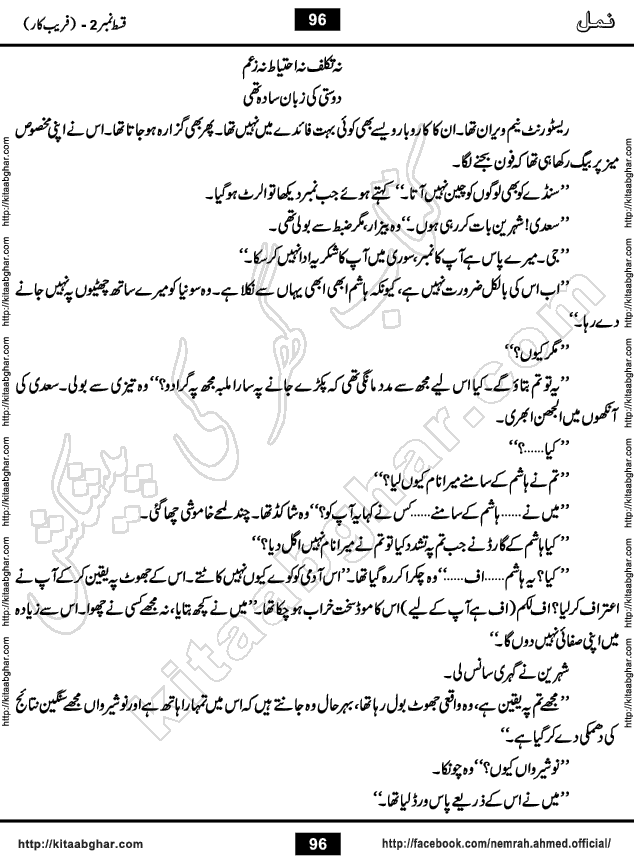 قسط نمبر 2 - (فریب کار) 96 نمل
نہ تکلف نہ احتیاط نہ زعم
دوستی کی زبان سادہ تھی
ریسٹورنٹ نیم ویران تھا۔ ان کا کاروبار ویسے بھی کوئی بہت فائدے میں نہیں تھا۔ پھر بھی گزارہ ہو جاتا تھا۔ اس نے اپنی مخصوص
میز پر بیگ رکھا ہی تھا کہ فون بجنے لگا۔
’’سنڈے کو بھی لوگوں کو چین نہیں آتا۔‘‘ کہتے ہوئے جب نمبر دیکھا تو الرٹ ہو گیا۔
’’سعدی! شہرین بات کر رہی ہوں۔‘‘ وہ بیزار، مگر ضبط سے بولی تھی۔
’’جی۔ میرے پاس ہے آپ کا نمبر، سوری میں آپ کا شکریہ ادا نہیں کر سکا۔‘‘
’’اب اس کی بالکل ضرورت نہیں ہے، کیونکہ ہاشم ابھی ابھی یہاں سے نکلا ہے۔ وہ سونیا کو میرے ساتھ چھٹیوں پہ نہیں جانے
دے رہا۔‘‘
’’مگر کیوں؟‘‘
’’یہ تو تم بتاؤ گے۔ کیا اس لیے مجھ سے مدد مانگی تھی کہ پکڑے جانے پہ سارا ملبہ مجھ پہ گرا دو؟‘‘ وہ تیزی سے بولی۔ سعدی کی
آنکھوں میں الجھن ابھری۔
’’کیا......؟‘‘
’’تم نے ہاشم کے سامنے میرا نام کیوں لیا؟‘‘
’’میں نے...... ہاشم کے سامنے...... کس نے کہا یہ آپ کو؟‘‘ وہ شاکڈ تھا۔ چند لمحے خاموشی چھا گئی۔
’’کیا ہاشم کے گارڈ نے جب تم پہ تشدد کیا تو تم نے میرا نام نہیں اگل دیا؟‘‘
’’کیا؟ یہ ہاشم...... اف......‘‘ وہ چکرا کر رہ گیا تھا۔ ’’اس آدمی کو کوے کیوں نہیں کاٹتے۔ اس کے جھوٹ پہ یقین کر کے آپ نے
اعتراف کر لیا؟ اف لکم (اف ہے آپ کے لیے) اس کا موڈ سخت خراب ہو چکا تھا۔ ’’میں نے کچھ بتایا، نہ مجھے کسی نے چھوا۔ اس سے زیادہ
میں اپنی صفائی نہیں دوں گا۔‘‘
شہرین نے گہری سانس لی۔
’’مجھے تم پہ یقین ہے، وہ واقعی جھوٹ بول رہا تھا، بہر حال وہ جانتے ہیں کہ اس میں تمہارا ہاتھ ہے اور نوشیرواں مجھے سنگین نتائج
کی دھمکی دے کر گیا ہے۔‘‘
’’نوشیرواں کیوں؟‘‘ وہ چونکا۔
’’میں نے اس کے ذریعے پاس ورڈ لیا تھا۔‘‘
http://kitaabghar.com
http://kitaabghar.com
http://kitaabghar.com
http://kitaabghar.com
http://kitaabghar.com
http://kitaabghar.com
http://kitaabghar.com
http://kitaabghar.com
http://kitaabghar.com
http://kitaabghar.com
http://kitaabghar.com
http://kitaabghar.com
کتاب گھر کی پیشکش
kitaabghar.com
http://kitaabghar.com 96 http://facebook.com/nemrah.ahmed.official/